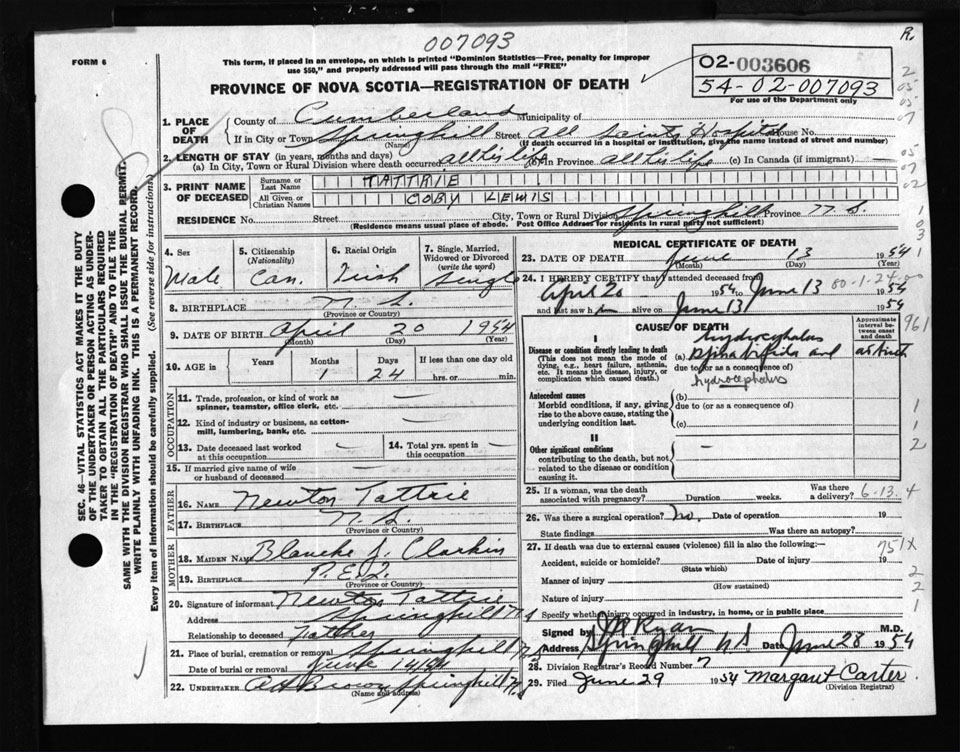 007093
R.
FORM 6
This form, if placed in an envelope, on which is printed "Dominion Statistics—Free, penalty for improper
use $50," and properly addressed will pass through the mail "FREE"
02-003606
54-02-007093
For use of the Department only
PROVINCE OF NOVA SCOTIA—REGISTRATION OF DEATH
1. PLACE OF DEATH
County of Cumberland Municipality of
If in City or Town Springhill Street All Saints Hospital House No.
(Name) (If death occurred in a hospital or institution, give the name instead of street and number)
2. LENGTH OF STAY (in years, months and days)
(a) In City, Town or Rural Division where death occurred all his life (b) in Province all his life (c) In Canada (if immigrant) —
3. PRINT NAME OF DECEASED
Surname or Last Name TATTRIE
All Given or Christian Names COBY LEWIS
RESIDENCE No. Street City, Town or Rural Division Springhill Province N.S.
(Residence means usual place of abode. Post Office Address for residents in rural parts not sufficient)
4. Sex Male
5. Citizenship (Nationality) Can.
6. Racial Origin Irish
7. Single, Married, Widowed or Divorced (write the word) Single
8. BIRTHPLACE N.S.
(Province or Country)
9. DATE OF BIRTH April 20 1954
(Month) (Day) (Year)
10. AGE in Years Months Days If less than one day old
1 24 hrs. or min.
OCCUPATION
11. Trade, profession, or kind of work as
spinner, teamster, office clerk, etc. —
12. Kind of industry or business, as cotton-
mill, lumbering, bank, etc. —
13. Date deceased last worked
at this occupation —
14. Total yrs. spent in
this occupation —
15. If married give name of wife
or husband of deceased —
FATHER
16. NAME Newton Tattrie
17. BIRTHPLACE N.S.
(Province or Country)
MOTHER
18. MAIDEN NAME Blanche J. Clarkin
19. BIRTHPLACE P.E.I.
(Province or Country)
20. Signature of informant Newton Tattrie
Address Springhill N.S
Relationship to deceased Father
21. Place of burial, cremation or removal Springhill N.S
Date of burial or removal June 14/54
22. UNDERTAKER A H Brown Springhill N.S
(Name and address)
MEDICAL CERTIFICATE OF DEATH
23. DATE OF DEATH June 13 1954
(Month) (Day) (Year)
24. I HEREBY CERTIFY that I attended deceased from
April 20 1954 June 13 1954
and last saw him alive on June 13 1954
80-1-24-00
CAUSE OF DEATH
Approximate interval between onset and death
I
Disease or condition directly leading to death
(This does not mean the mode of
dying, e.g., heart failure, asthenia,
etc. It means the disease, injury, or
complication which caused death.)
hydrocephalus
(a) Spina bifida and at birth
due to (or as a consequence of)
hydrocephalus
Antecedent causes
Morbid conditions, if any, giving
rise to the above cause, stating the
underlying condition last.
(b)
due to (or as a consequence of)
(c)
II
Other significant conditions
contributing to the death, but not
related to the disease or condition
causing it.
—
25. If a woman, was the death
associated with pregnancy? Duration weeks. Was there
a delivery?
6-13.4
26. Was there a surgical operation? No. Date of operation 19
State findings Was there an autopsy?
27. If death was due to external causes (violence) fill in also the following:—
751X
Accident, suicide or homicide? Date of injury 19
(State which)
Manner of injury
(How sustained)
Nature of injury
Specify whether injury occurred in industry, in home, or in public place
Signed by J W Ryan M.D.
Address Springhill N.S Date June 28 1954
28. Division Registrar's Record Number 7
29. Filed June 29 1954 Margaret Carter
(Division Registrar)
961
SEC. 46—VITAL STATISTICS ACT MAKES IT THE DUTY
OF THE UNDERTAKER OR PERSON ACTING AS UNDER-
TAKER TO OBTAIN ALL THE PARTICULARS REQUIRED
IN THE "REGISTRATION OF DEATH" AND TO FILE THE
SAME WITH THE DIVISION REGISTRAR WHO SHALL ISSUE THE BURIAL PERMIT.
WRITE PLAINLY WITH UNFADING INK. THIS IS A PERMANENT RECORD.
Every item of information should be carefully supplied. (See reverse side for instructions)